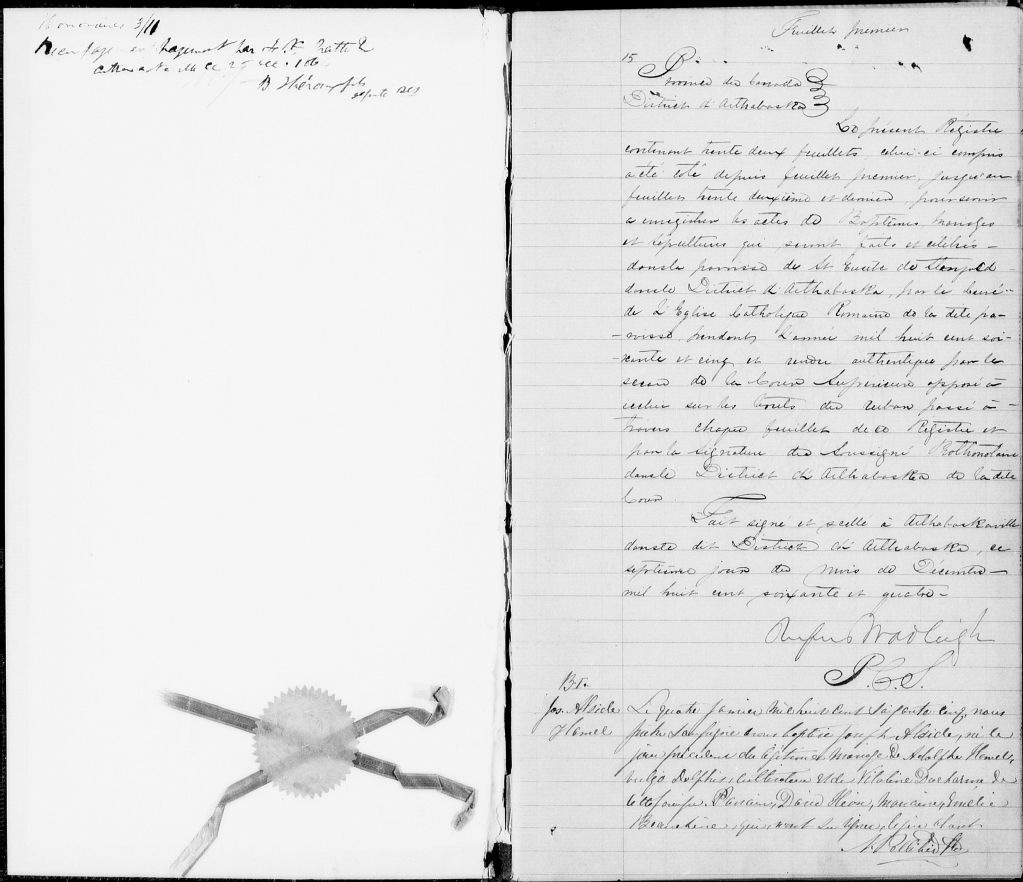 Honoraires 3/11
B Théroux fils
Feuillet premier
15
Province du Canada
District d'Arthabaska
Le présent Régistre
contenant trente deux feuillets celui-ci compris
a été coté depuis feuillet premier, jusqu'au
feuillet trente deuxième et dernier, pour servir
a enregistrer les actes de Baptêmes Mariages
et sépultures qui seront faits et célébrés -
dans la paroisse de St Eusèbe de Stanfold
dans le District d'Arthabaska, par le Curé -
de L'Eglise Catholique Romaine de la dite pa-
-roisse pendant L'année mil huit cent soi-
xante et cinq et rendu authentique par le
sceau de la Cour Supérieure apposé à
icelui sur les bouts du ruban passé à -
travers chaque feuillet de ce Régistre et
par la signature du Soussigné Prothonotaire
dans le District d'Arthabaska de la dite
Cour
Fait signé et scellé à Arthabaskaville
dans le dit District d'Arthabaska, ce
septième jour du mois de Décembre -
mil huit cent soixante et quatre -
Rufus Wadleigh
P.C.S.
B 1.
Jos. Alside
Hamel
Le quatre Janvier mil huit cent soixante cinq, nous
prêtre soussigné avons baptisé Joseph Alside, né le
jour précédent du légitime mariage de Adolphe Hamel,
cultivateur et de Ducharme de
cette paroisse. Parrain, David Marraine, Emélie
qui n'ont su signer,